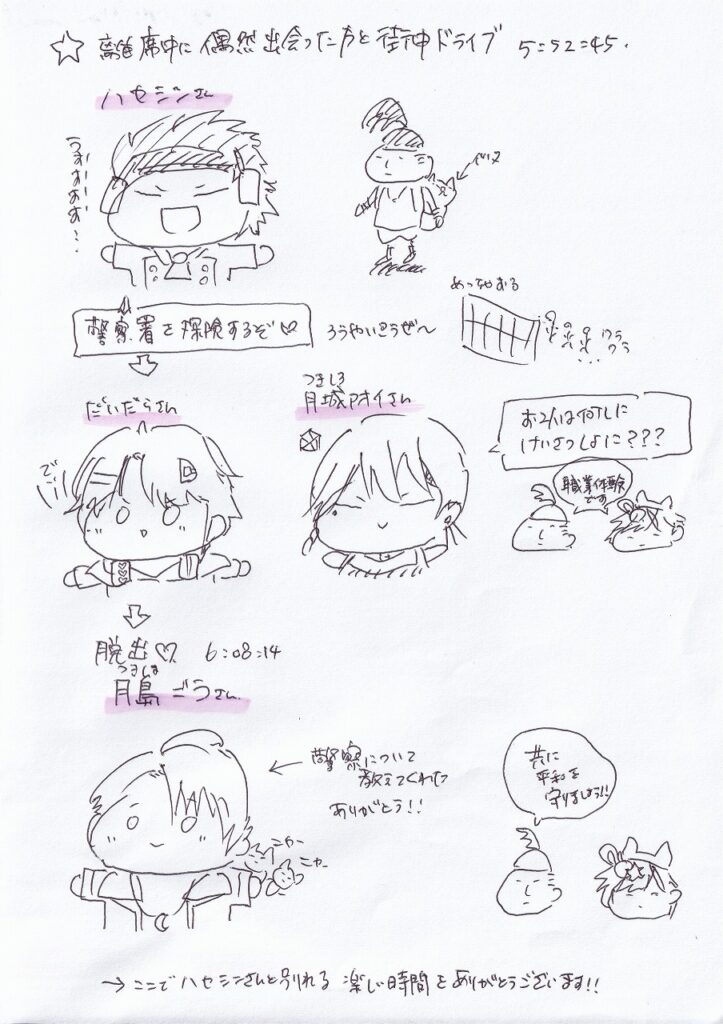 ☆ 離席中に偶然出会った方と街中ドライブ 5:52:45.
ハセシンさん
うおおおおお…
警察署を探険するぞ♡
ろうやいこうぜ〜
めっちゃおる
ワラ
ワラ
だいだらさん
つきしろ
月城アオイさん
お2人は何しに
けいさつしょに???
職業体験
です
↓
脱出♡ 6:08:14
つきしま
月島ごうさん
← 警察について
教えてくれた
ありがとう!!
ニャー
ニャー
共に
平和を
守りましょう!!
→ ここでハセシンさんと別れる 楽しい時間をありがとうございます!!